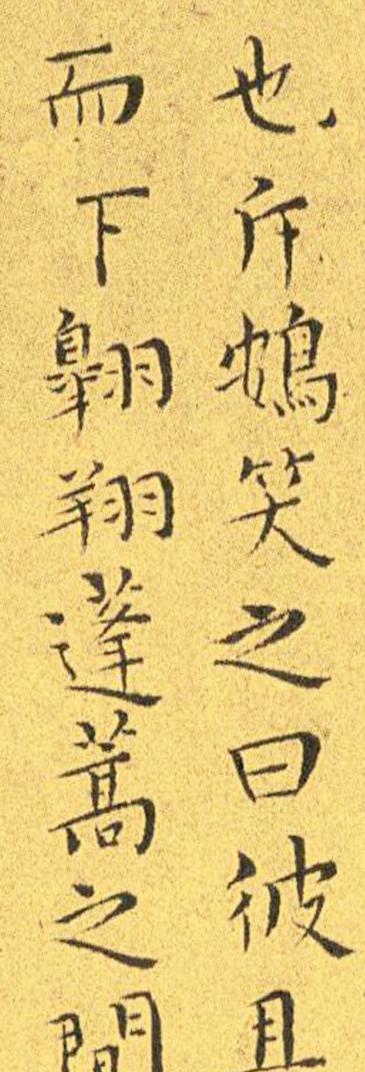 也斥鴳笑之曰彼且
而下翺翔蓬蒿之間